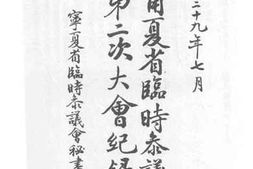 二十九年七月
寧夏省臨時參議
第二次大會紀錄
寧夏省臨時參議會秘書